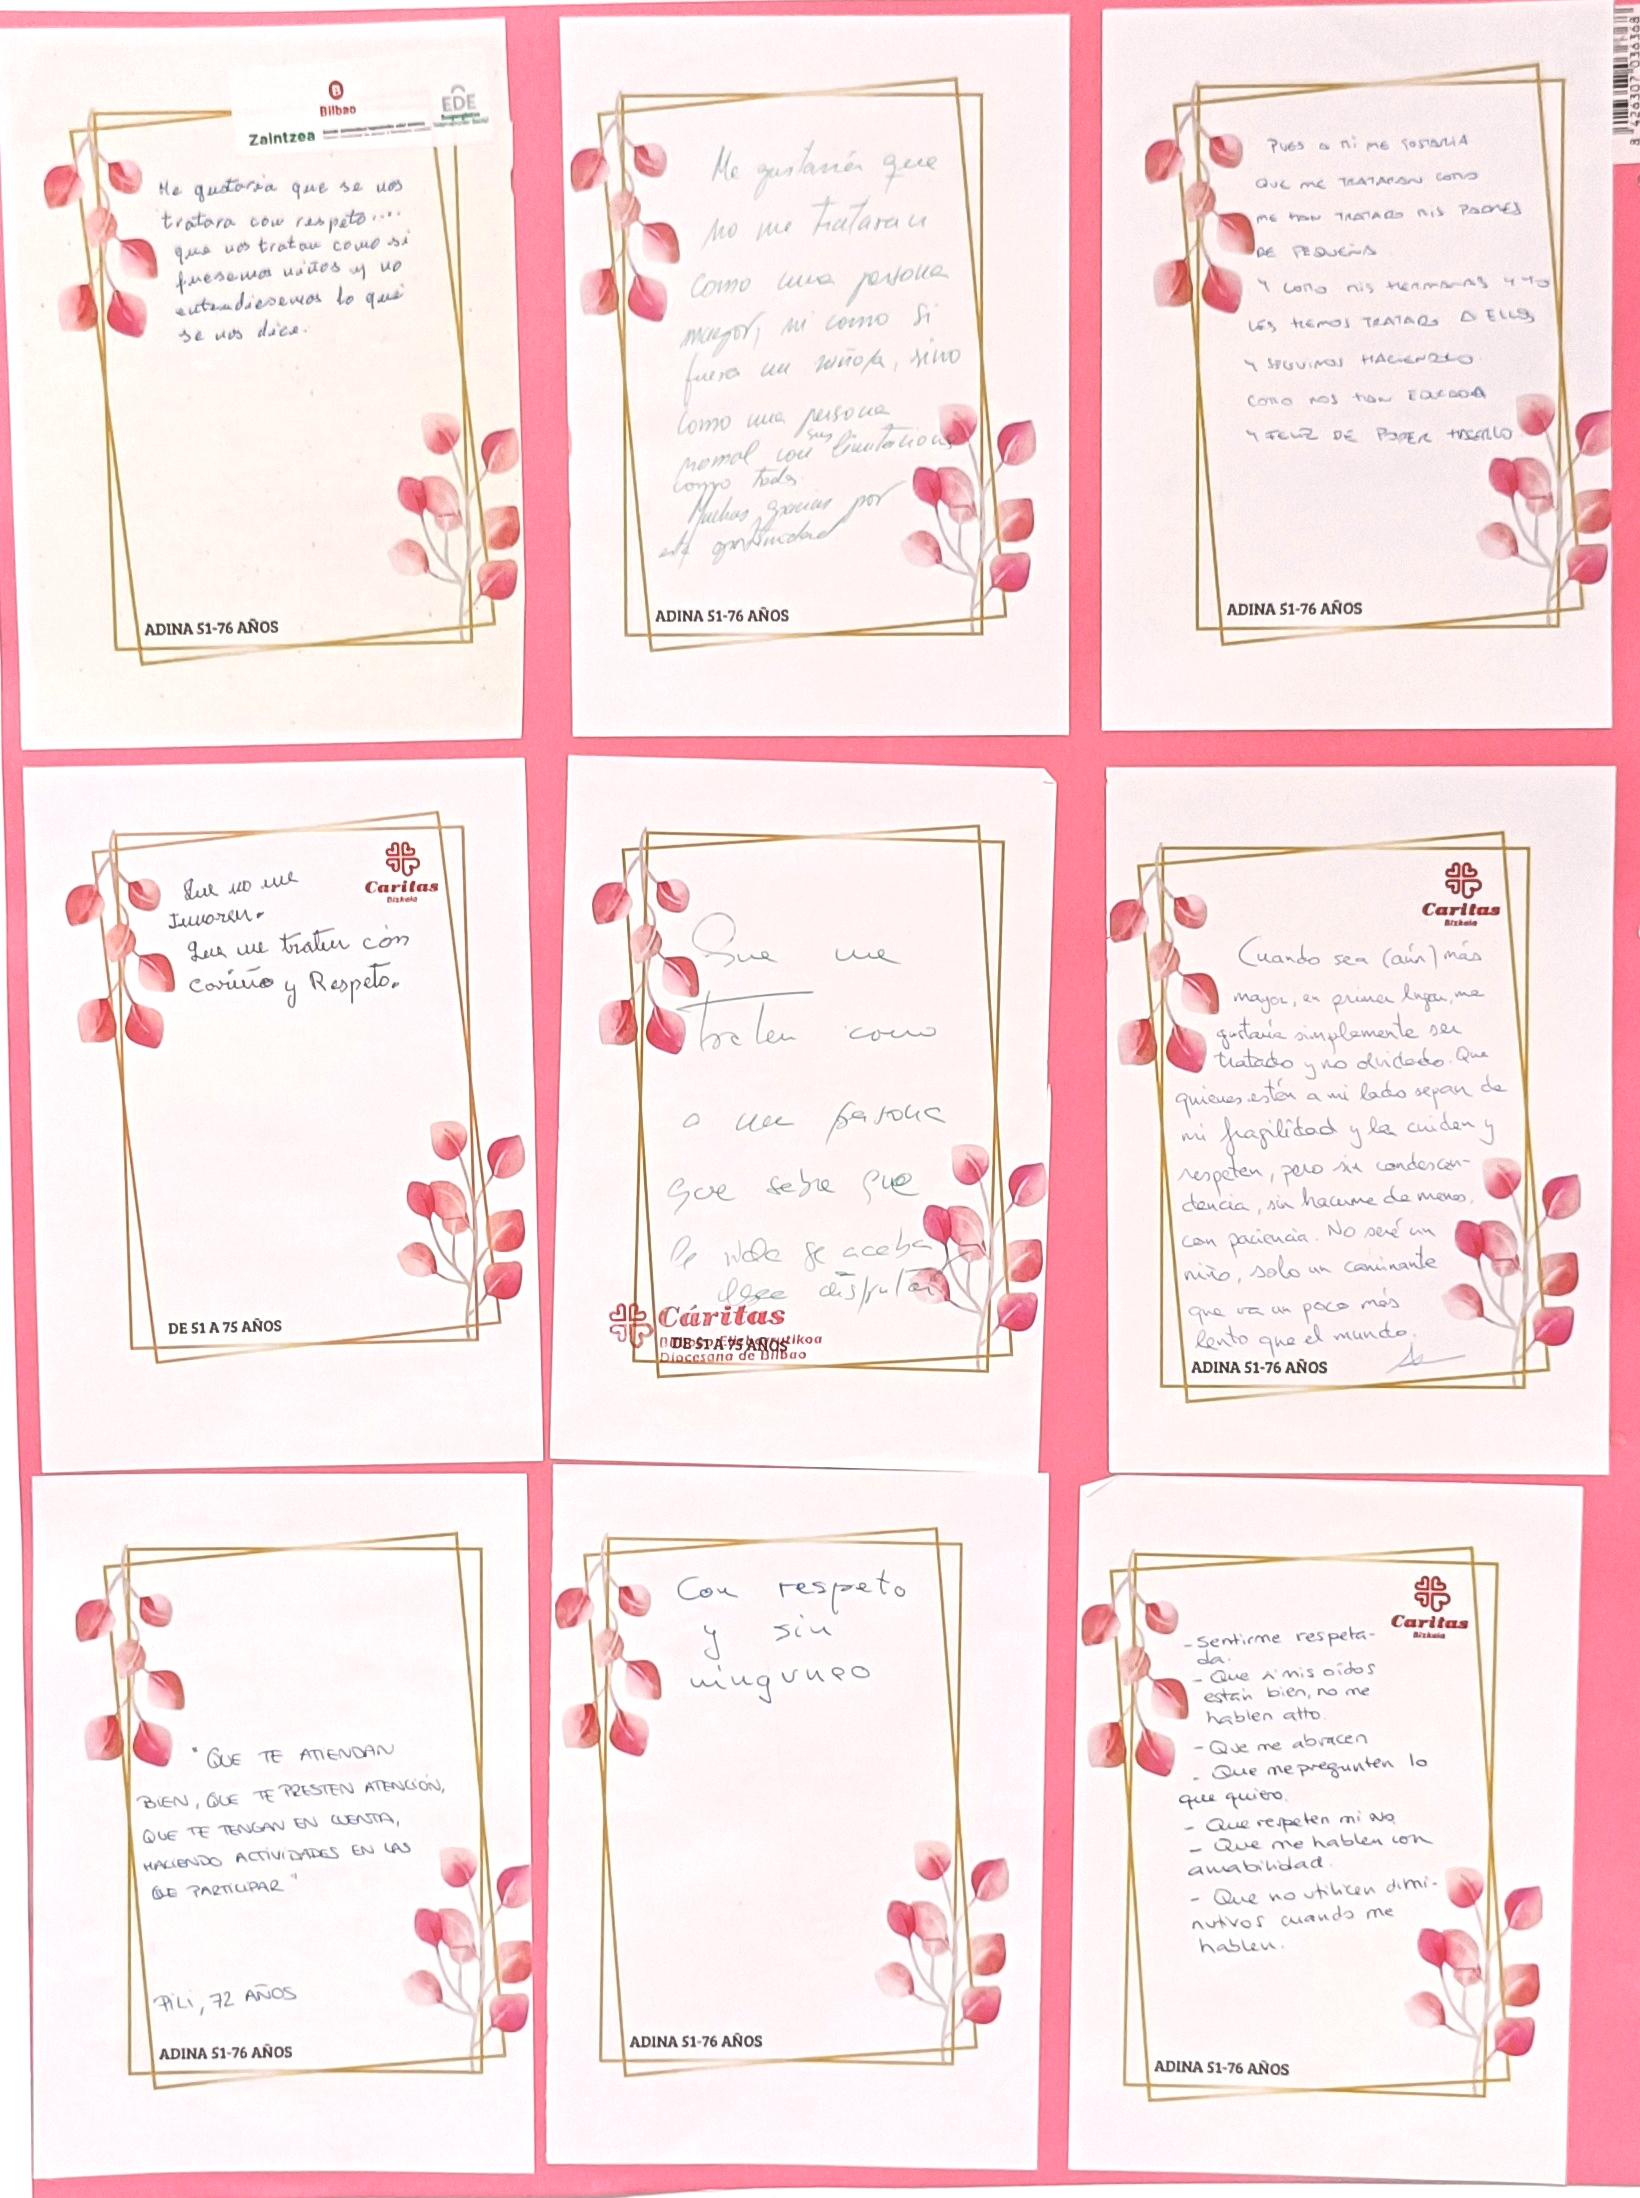 Bilbao
EDE
Zaintzea
Me gustaria que se nos
tratara con respeto....
que nos tratan como si
fuesemos niños y no
entendiesemos lo que
se nos dice.
ADINA 51-76 AÑOS
Me gustaría que
no me trataran
como una persona
mayor, ni como si
fuera un niño/a, sino
como una persona
normal con sus limitaciones
como todos.
Muchas gracias por
esta oportunidad
ADINA 51-76 AÑOS
8 426307 036368
PUES A MI ME GOSTARIA
QUE ME TRATARAN COMO
ME HAN TRATADO MIS PADRES
DE PEQUEÑA.
Y COMO MIS HERMANAS Y YO
LES HEMOS TRATADO A ELLOS
Y SEGUIMOS HACIENDLO
COMO NOS HAN EDUCADO
Y FELIZ DE PODER HACERLO
ADINA 51-76 AÑOS
Caritas
Bizkaia
Que no me
Que me traten con
cariño y Respeto.
DE 51 A 75 AÑOS
Que me
traten como
a una persona
que sabe que
la vida se acaba
disfrutar
Cáritas
Diocesana de Bilbao
DE 51 A 75 AÑOS
Caritas
Bizkaia
Cuando sea (aún) más
mayor, en primer lugar, me
gustaría simplemente ser
tratado y no olvidado. Que
quienes estén a mi lado sepan de
mi fragilidad y la cuiden y
respeten, pero sin condescen-
dencia, sin hacerme de menos,
con paciencia. No seré un
niño, solo un caminante
que va un poco más
lento que el mundo.
ADINA 51-76 AÑOS
"QUE TE ATIENDAN
BIEN, QUE TE PRESTEN ATENCIÓN,
QUE TE TENGAN EN CUENTA,
HACIENDO ACTIVIDADES EN LAS
QUE PARTICIPAR"
PILI, 72 AÑOS
ADINA 51-76 AÑOS
Con respeto
y sin
ninguneo
ADINA 51-76 AÑOS
Caritas
Bizkaia
- Sentirme respeta-
da.
- Que si mis oídos
están bien, no me
hablen alto.
- Que me abracen
- Que me pregunten lo
que quiero.
- Que respeten mi NO
- Que me hablen con
amabilidad.
- Que no utilicen dimi-
nutivos cuando me
hablen.
ADINA 51-76 AÑOS